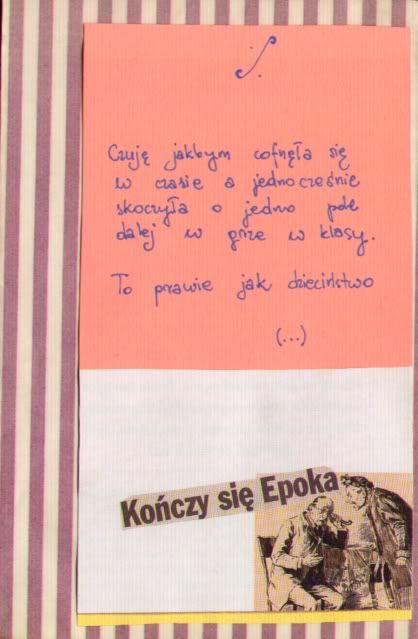 Czuję jakbym cofnęła się
w czasie a jednocześnie
skoczyła o jedno pole
dalej w grze w klasy.
To prawie jak dzieciństwo
(...)
Kończy się Epoka